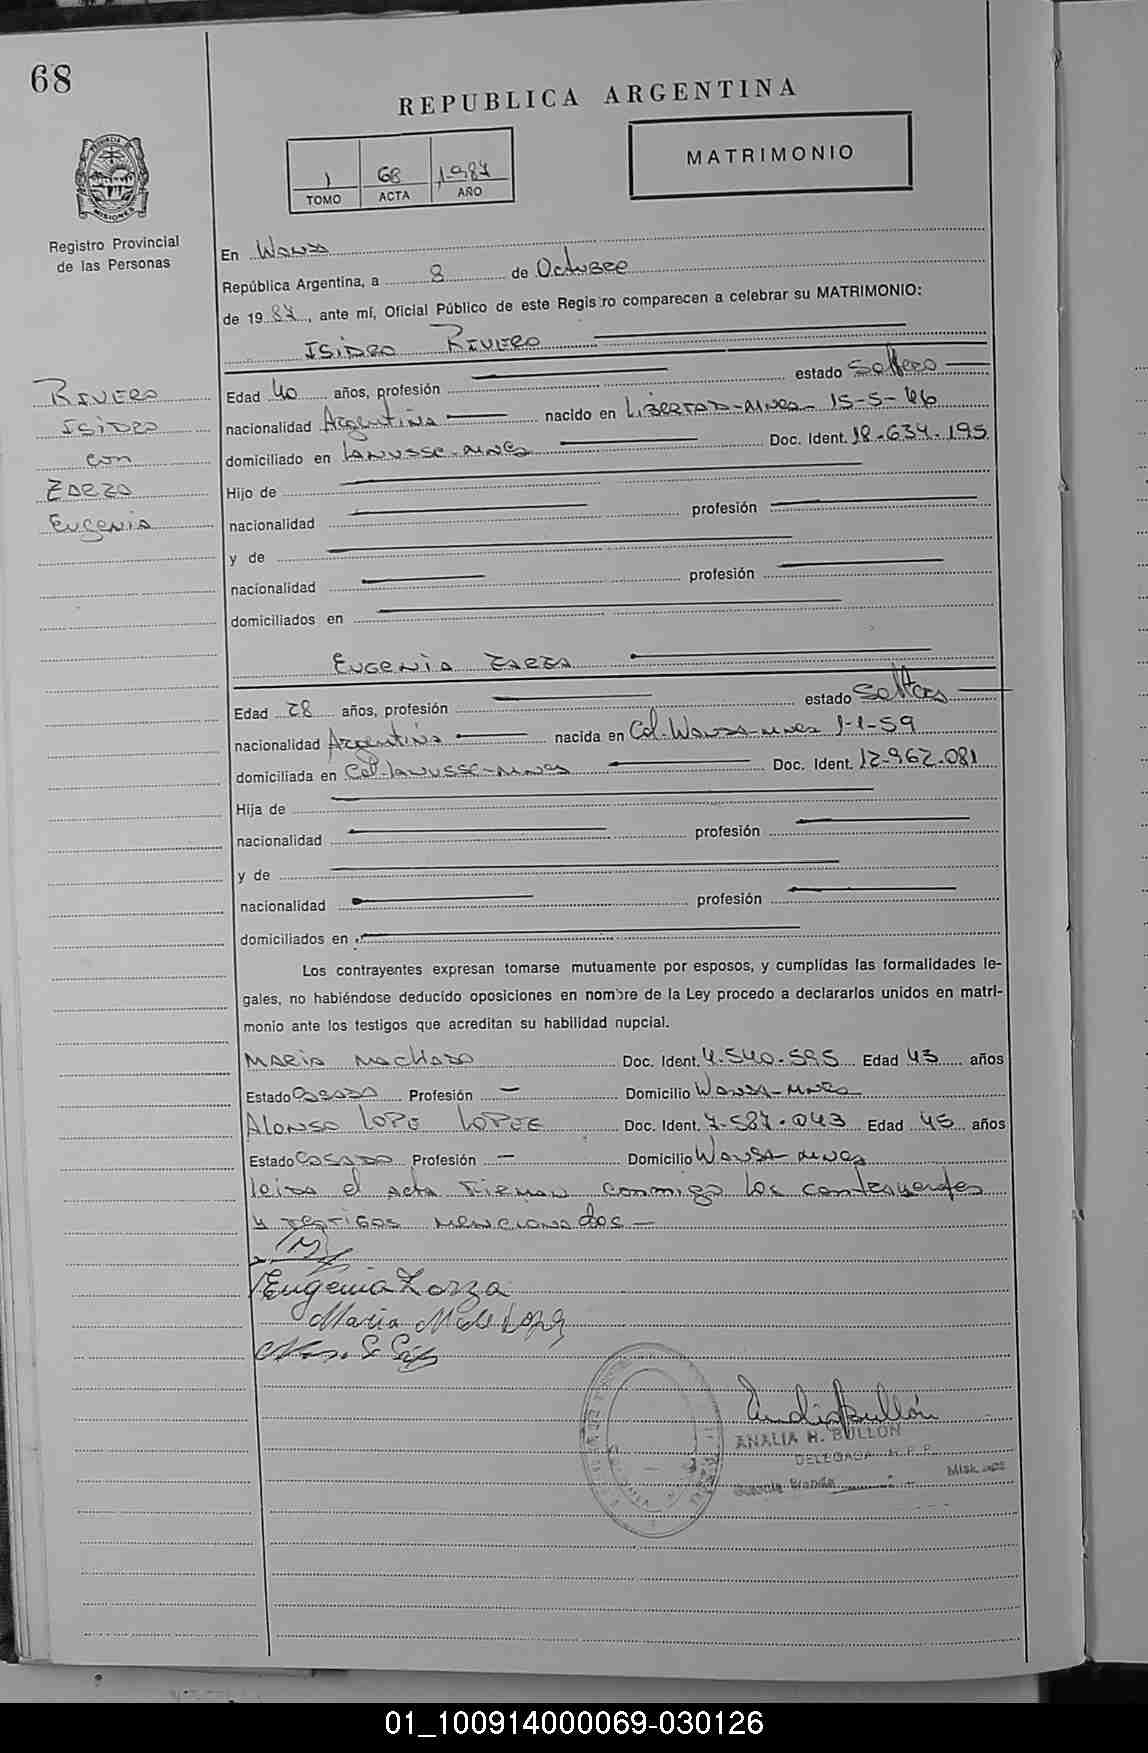 68
REPUBLICA ARGENTINA
1 68 1.987
TOMO ACTA AÑO
MATRIMONIO
Registro Provincial
de las Personas
En Wanda
República Argentina, a 8 de Octubre
de 1987, ante mí, Oficial Público de este Registro comparecen a celebrar su MATRIMONIO:
Isidro Rivero
Rivero
Isidro
con
Zarza
Eugenia
Edad 40 años, profesión estado Soltero
nacionalidad Argentina nacido en Libertad-Mnes- 15-5-46
domiciliado en Lanusse-Mnes Doc. Ident. 18.634.195
Hijo de
nacionalidad profesión
y de
nacionalidad profesión
domiciliados en
Eugenia Zarza
Edad 28 años, profesión estado Soltera
nacionalidad Argentina nacida en Col-Wanda-Mnes 1-1-59
domiciliada en Col-Lanusse-Mnes Doc. Ident. 12.962.081
Hija de
nacionalidad profesión
y de
nacionalidad profesión
domiciliados en
Los contrayentes expresan tomarse mutuamente por esposos, y cumplidas las formalidades le-
gales, no habiéndose deducido oposiciones en nombre de la Ley procedo a declararlos unidos en matri-
monio ante los testigos que acreditan su habilidad nupcial.
Maria Machado Doc. Ident. 4.540.595 Edad 43 años
Estado Casada Profesión — Domicilio Wanda-Mnes
Alonso Lope Lopez Doc. Ident. 7.587.043 Edad 45 años
Estado Casado Profesión — Domicilio Wanda-Mnes
leida el acta Firman conmigo los contrayentes
y testigos mencionados —
Eugenia Zarza
Maria M de Lopez
ANALIA H. BULLON
DELEGADA R.P.P.
Misiones
01_100914000069-030126